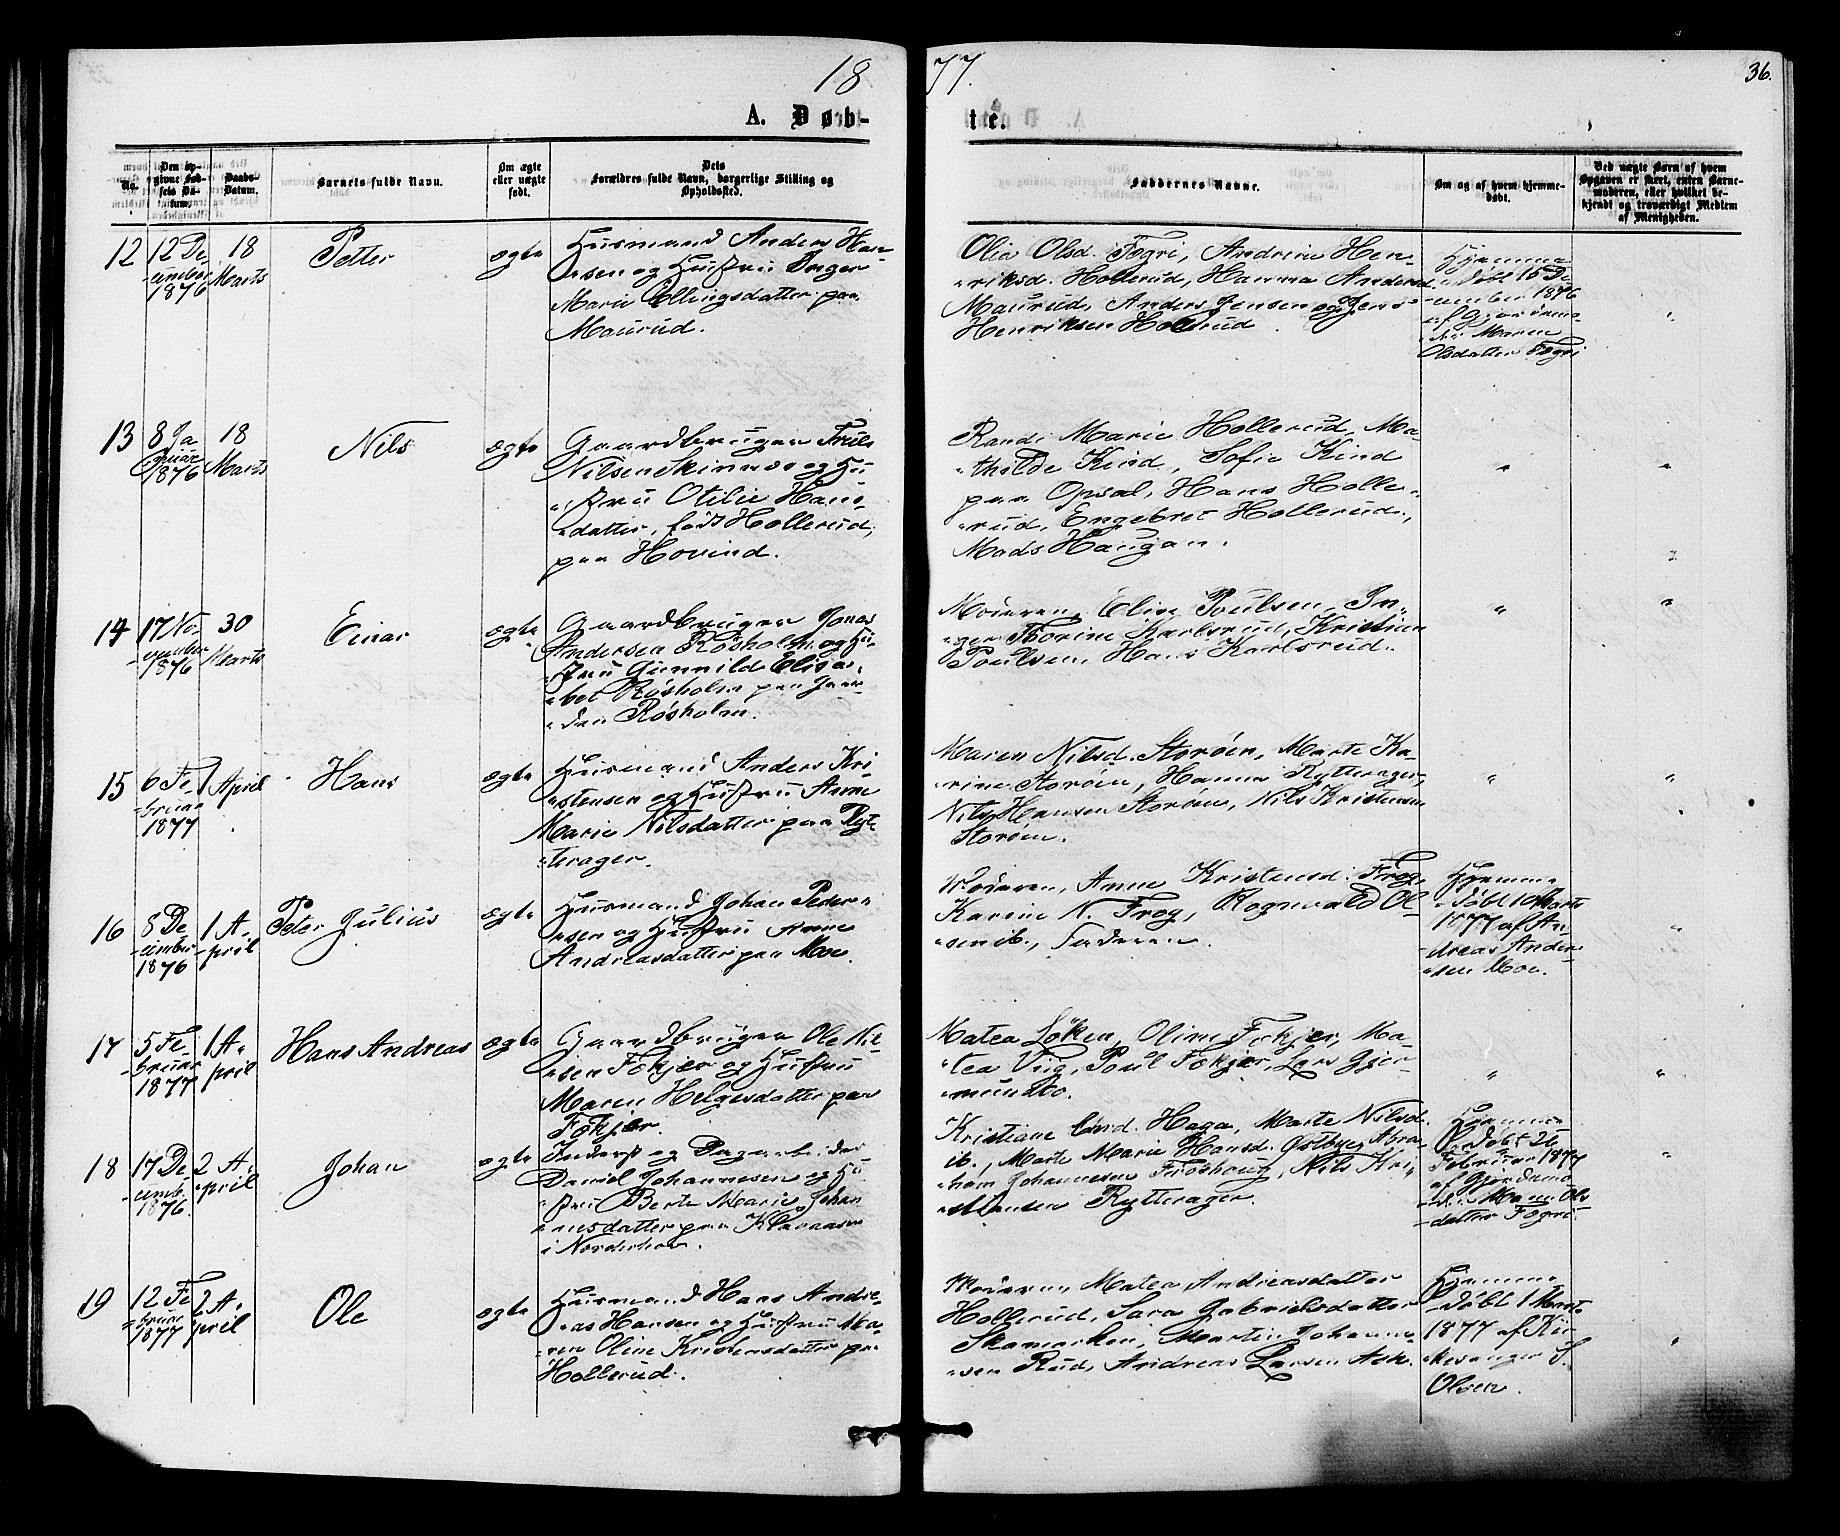 1877.
36.
A. Døbte.
No.
Den opgivne Fødsels Datum.
Daabs-Datum.
Barnets fulde Navn.
Om ægte eller uægte født.
Dets Forældres fulde Navn, borgerlige Stilling og Opholdssted.
Faddernes Navne.
Om og af hvem hjemmedøbt.
Ved uægte Børn af hvem Opgaven er skeet, enten Barnemoderen, eller hvilket bekjendt og troværdigt Medlem af Menigheden.
12
12 De-
-cember
1876
18
Marts
Petter
ægte
Husmand Anders Han-
-sen og Hustru Inger
Marie Ellingsdatter paa
Maurud.
Olia Olsd. Fogri, Andrine Hen-
-riksd. Hollerud, Hanna Andersd.
Maurud, Anders Jensen og Jens
Henriksen Hollerud.
Hjemme-
-døbt 15 De-
-cember 1876
af Gjordemo-
-der Maren
Olsdatter Fogri
13
8 Ja-
-nuar
1876
18
Marts
Nils
ægte
Gaardbruger Truls
Nilsen Skinnes og Hu-
-stru Otilie Hans-
-datter, født Hollerud,
paa Hovind.
Randi Marie Hollerud, Ma-
-thilde Kind, Sofie Kind
paa Opsal, Hans Holle-
-rud, Engebret Hollerud,
Mads Haugan.
"
"
14
17 No-
-vember
1876
30
Marts
Einar
ægte
Gaardbruger Jonas
Andersen Røsholm og Hu-
-stru Gunnild Elisa-
-bet Røsholm paa Gaar-
-den Røsholm.
Moderen, Eline Poulsen, In-
-ger Thorine Karlsrud, Kristian
Poulsen, Hans Karlsrud.
"
"
15
6 Fe-
-bruar
1877
1 April
Hans
ægte
Husmand Anders Kri-
-stensen og Hustru Anne
Marie Nilsdatter paa Ryt-
-terager.
Maren Nilsd. Storøen, Marte Ka-
-rine Storøen, Hanna Rytterager,
Nils Hansen Storøen, Nils Kristensen
Storøen.
"
"
16
8 De-
-cember
1876
1 A-
-pril
Peter Julius
ægte
Husmand Johan Peder-
-sen og Hustru Anne
Andreasdatter paa Moe.
Moderen, Anne Kristensd. Frog,
Karine N. Frog, Rognvald Ol-
-sen ib., Faderen.
Hjemme-
-døbt 10 Marts
1877 af An-
-dreas Ander-
-sen Moe.
"
17
5 Fe-
-bruar
1877
1 A-
pril
Hans Andreas
ægte
Gaardbruger Ole Nil-
-sen Fokjær og Hustru
Maren Helgesdatter paa
Fokjær.
Matea Løken, Oline Fokjær, Ma-
-tea Viig, Poul Fokjær, Lars Gjer-
-mundbo.
"
"
18
17 De-
-cemb.
1876.
2 A-
-pril
Johan
ægte
Inderst og Dagarbeider
Daniel Johannesen og Hu-
-stru Berte Marie Johan-
-nesdatter paa
i Norderhov.
Kristiane Haga, Marte Nilsd.
ib., Marte Marie Hansd. Østbye, Abra-
-ham Johannesen Froshoug, Nils Kri-
-stiansen Rytterager.
Hjemme-
-døbt 26
Februar 1877
af Gjordemo-
-der Maren Ols-
-datter Fogri.
"
19
12 Fe-
-bruar
1877
2 A-
pril
Ole
ægte
Husmand Hans Andre-
-as Hansen og Hustru Ma-
-ren Oline Kristensdatter paa
Hollerud.
Moderen, Matea Andreasdatter
Hollerud, Sara Gabrielsdatter
Skamarken, Martin Johanne-
-sen Rud, Andreas Larsen Ask.
Hjemme-
-døbt 1 Marts
1877 af Kir-
-kesanger S.
Olsen.
"